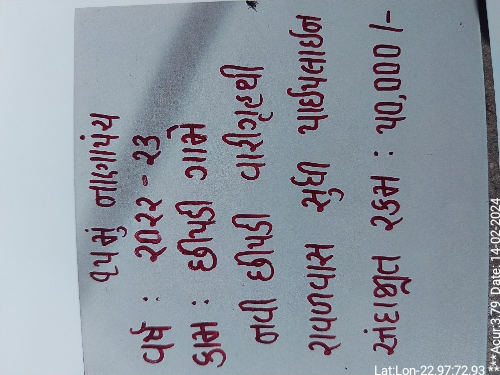 ૧૫મું નાણાપંચ
વર્ષ : ૨૦૨૨ - ૨૩
કામ : છીપડી ગામે
નવી છીપડી વારીગૃહથી
રાવળવાસ સુધી પાઈપલાઈન
અંદાજીત રકમ : ૫૦,૦૦૦ /-
Lat:Lon-22.97:72.93
**Acur:3.79 Date: 14-02-2024